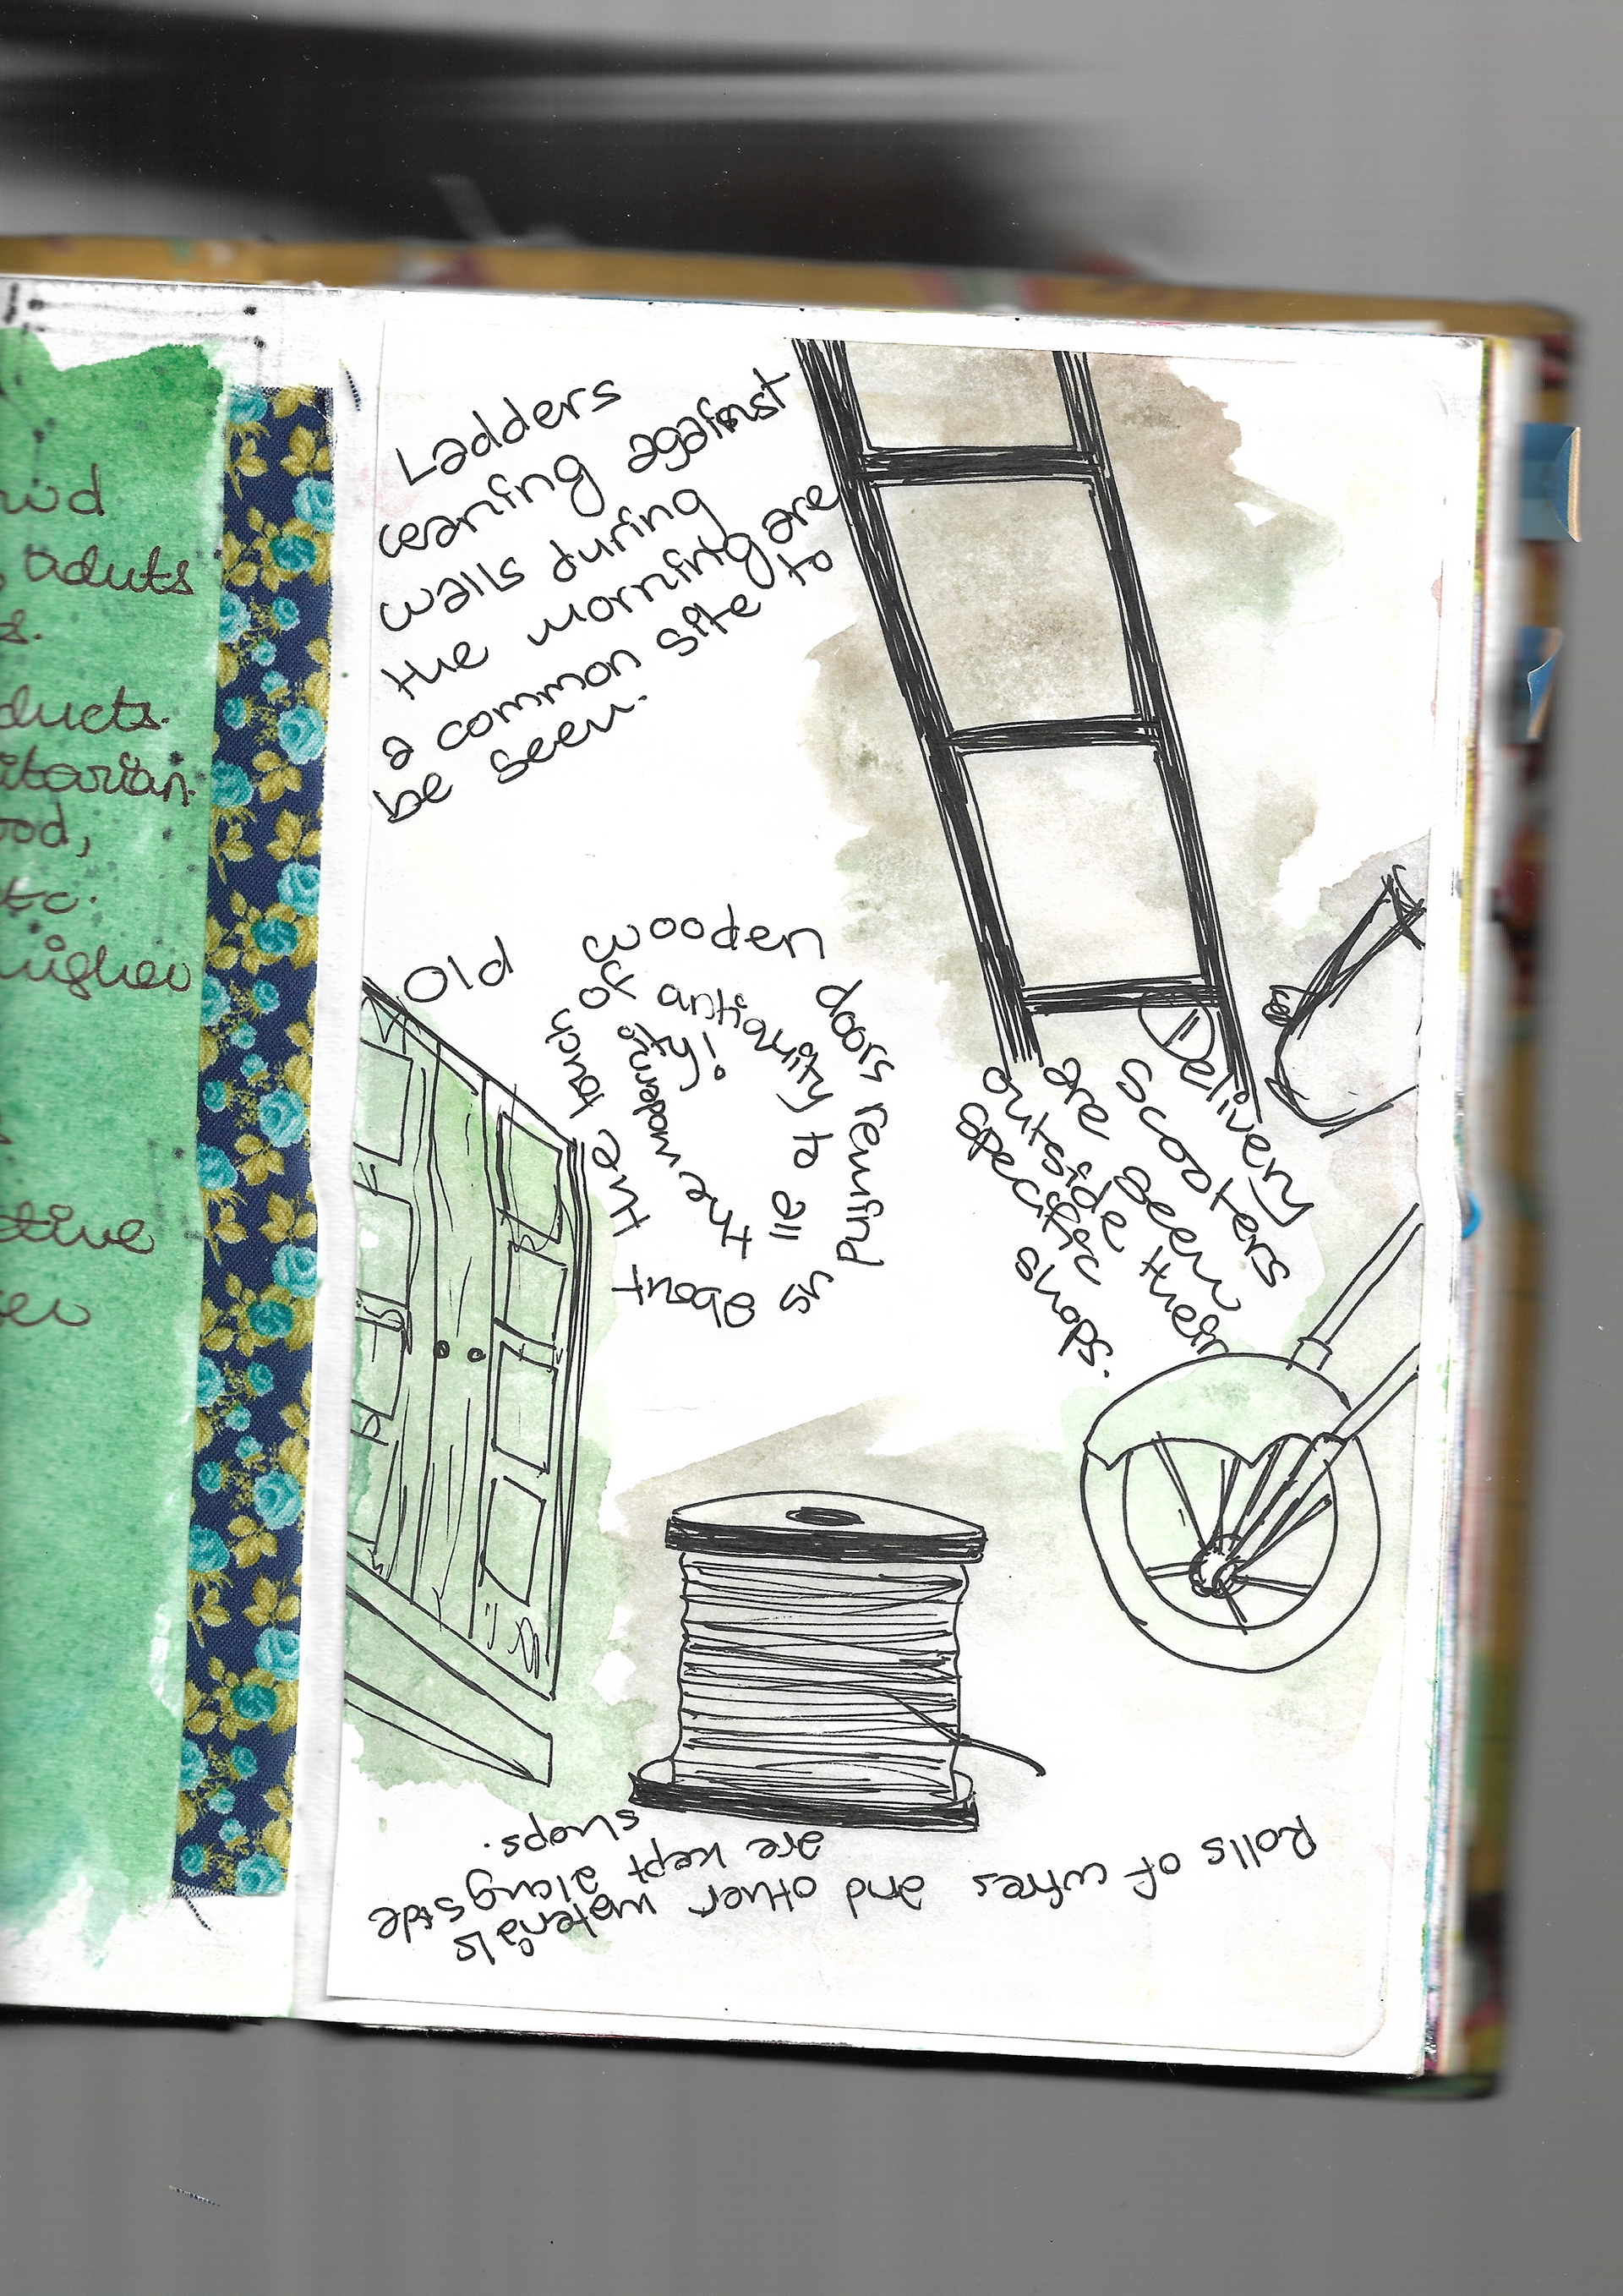 aduts
ducts.
itarian
ood,
etc.
higher
ctive
Ladders
leaning against
walls during
the morning are
a common site to
be seen.
Old wooden doors remind us about The touch of antiquity to all The modernity!
Delivery
scooters
are seen
outside their
specific
shops.
Rolls of wires and other materials
are kept alongside
shops.